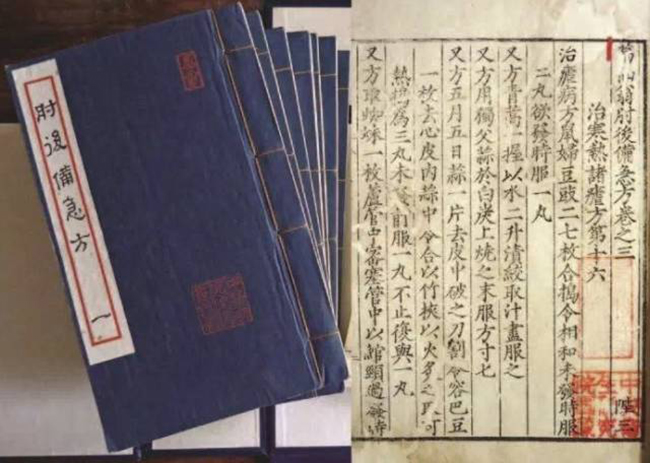 肘後備急方
一
葛仙翁肘後備急方卷之三
治寒熱諸瘧方第十六
治瘧病方鼠婦豆豉二七枚合搗令相和未發時服
二丸欲發時服一丸
又方青蒿一握以水二升漬絞取汁盡服之
又方用獨父蒜於白炭上燒之末服方寸七
又方五月五日蒜一片去皮中破之刀割令容巴豆
一枚去心皮內蒜中令合以竹挾以火炙之取可
熱搗為三丸未發前服一丸不止復與一丸
又方取蜘蛛一枚蘆管中密塞管中以綰頸過發時
陛三